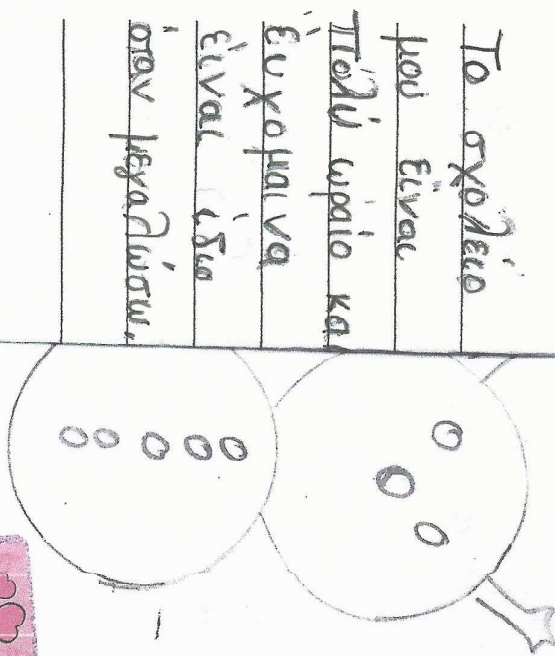 Το σχολείο
μου είναι
πολύ ωραίο κα
εύχομαι να
είναι ίδιο
όταν μεγαλώσω.